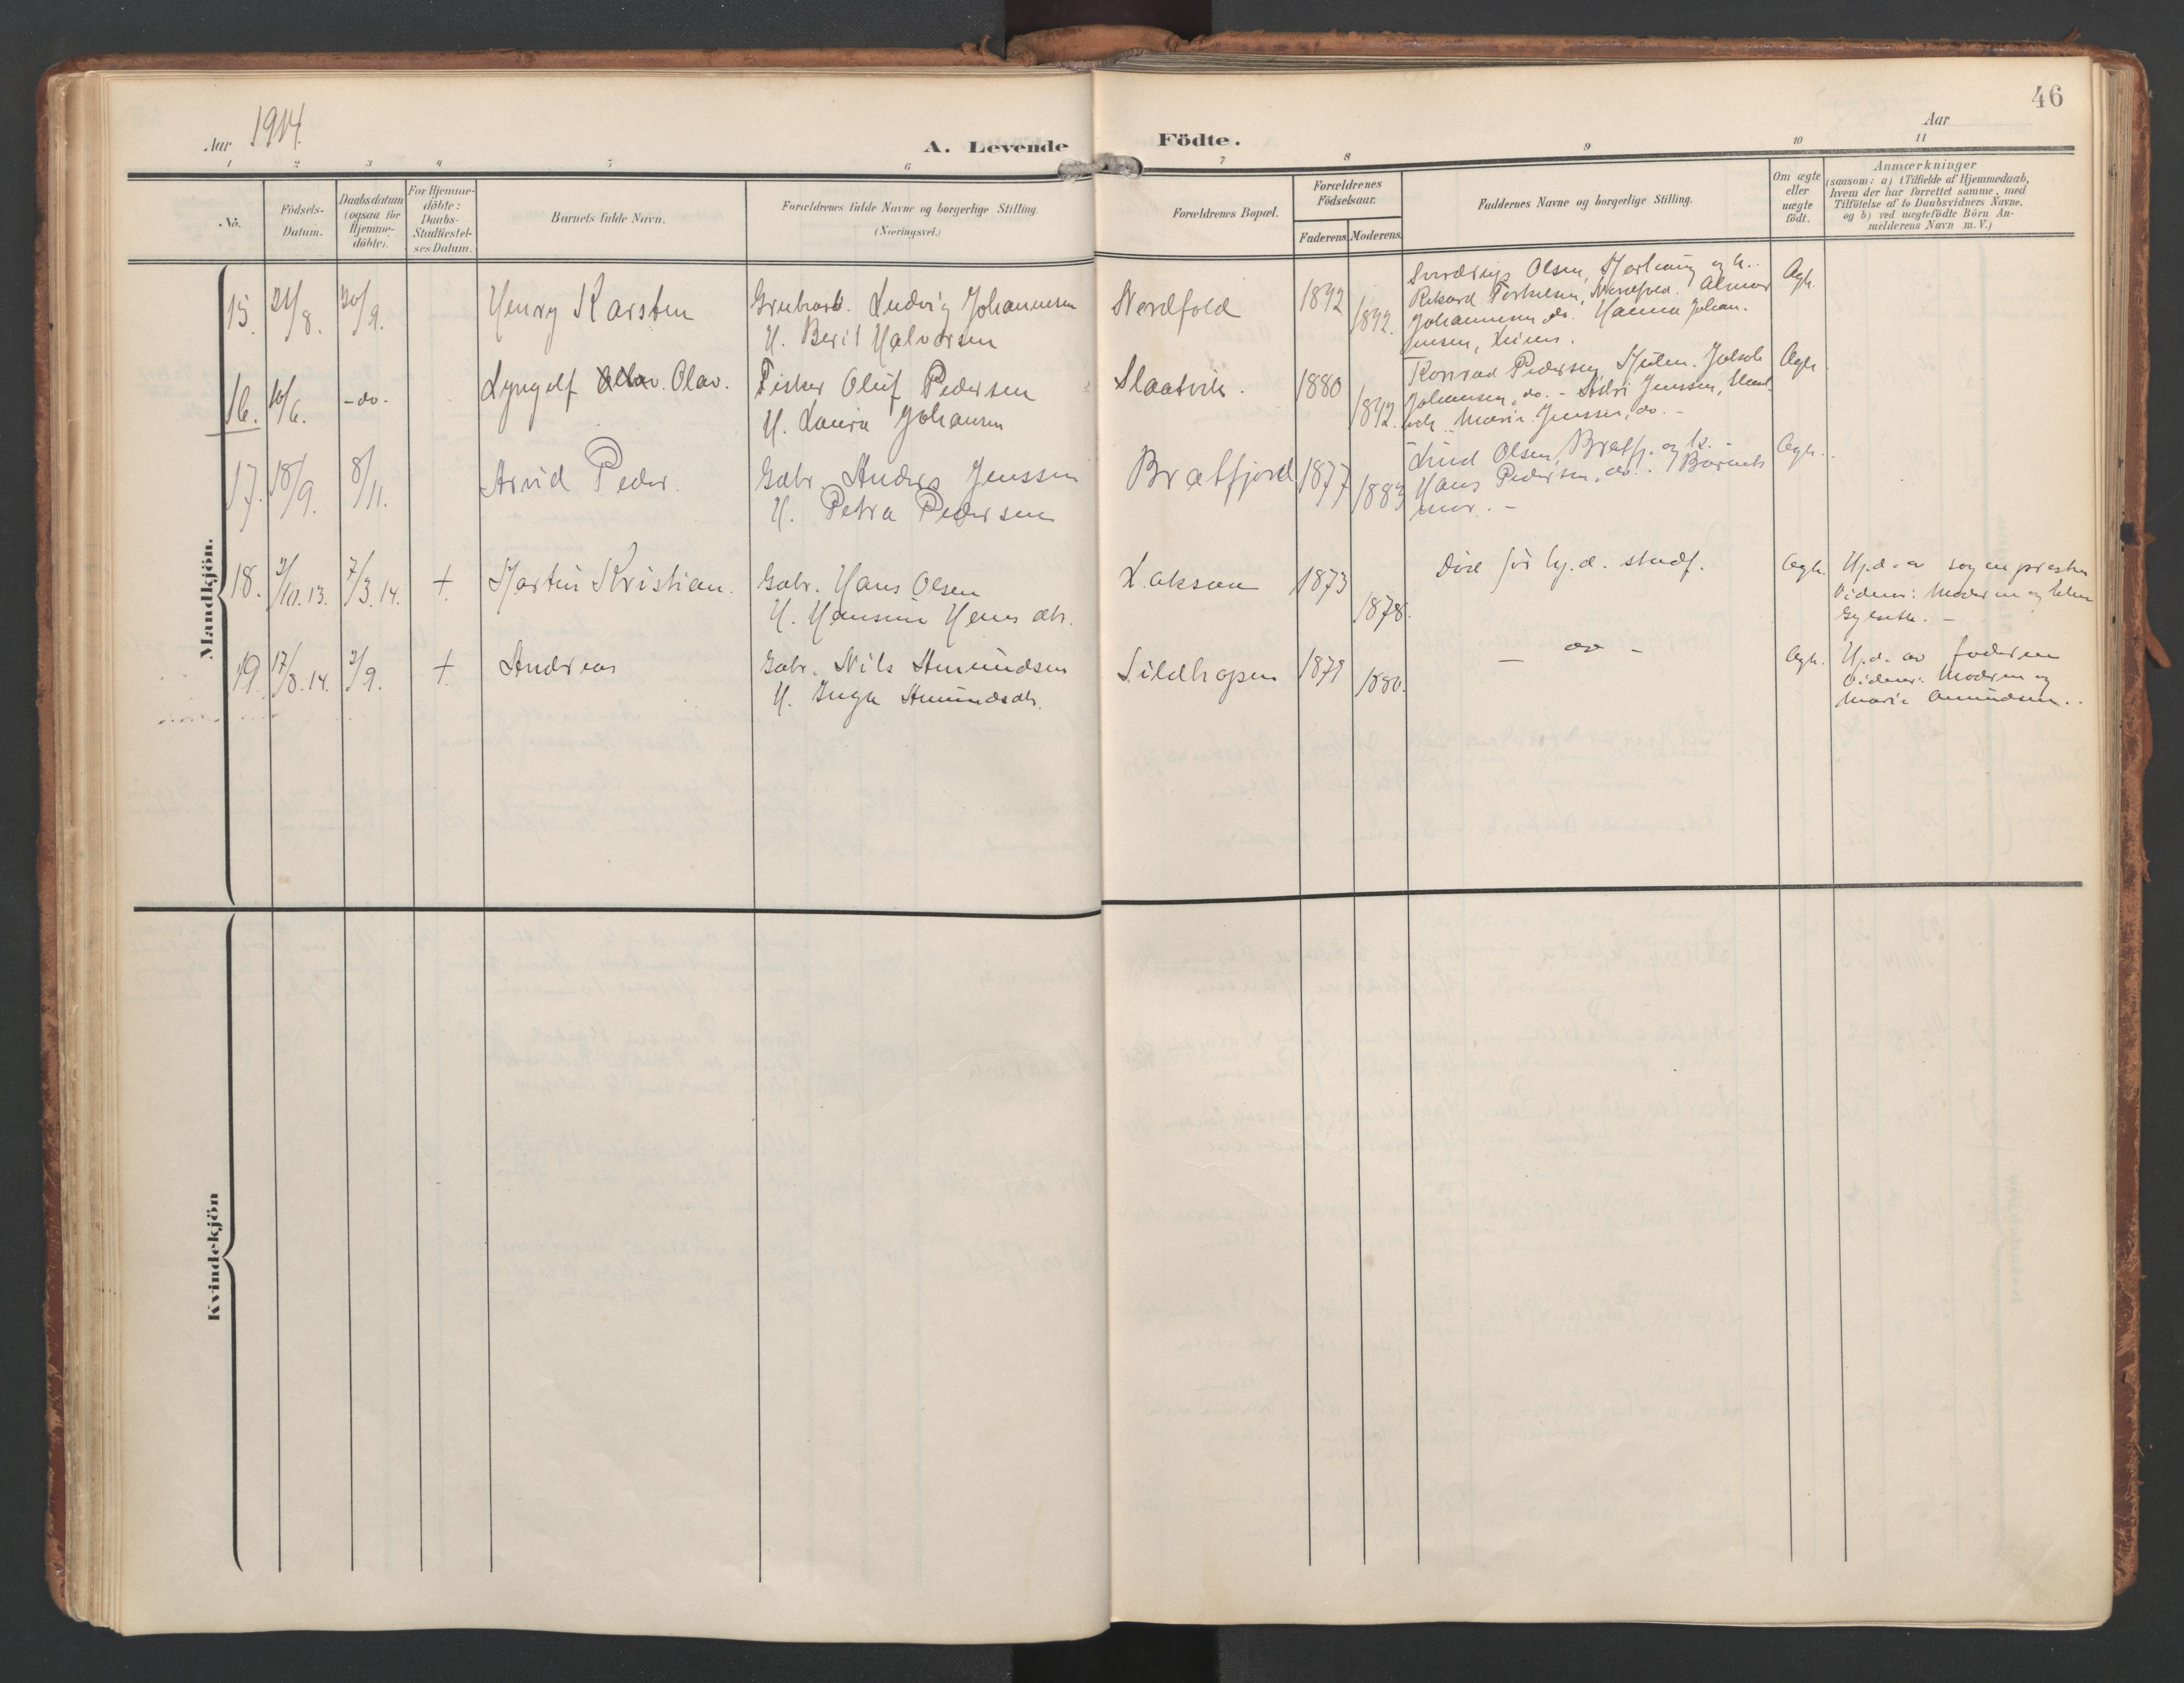 46
Aar 1914.
A. Levende Födte.
Aar
1 2 3 4 5 6 7 8 9 10 11
Nö.
Födsels-
Datum.
Daabsdatum
(ogsaa for
Hjemme-
döbte).
For Hjemme-
döbte:
Daabs-
Stadfestel-
ses Datum.
Barnets fulde Navn.
Forældrenes fulde Navne og borgerlige Stilling.
(Næringsvei.)
Forældrenes Bopæl.
Forældrenes
Födselsaar.
Faderens. Moderens.
Faddernes Navne og borgerlige Stilling.
Om ægte
eller
uægte
födt.
Anmærkninger
(saasom: a) i Tilfælde af Hjemmedaab,
hvem der har forrettet samme, med
Tilföielse af to Daabsvidners Navne.
og b) ved uægtefödte Börn An-
melderens Navn m. V.)
Mandkjön.
15. 21/8. 20/9. Henry Karsten
Grubearb. Ludvig Johannesen
H. Berit Halvorsen
Nordfold 1892 1892.
Olsen, og h.
Rikard Torkelsen, Nordfold. Almar
Johannesen do. Hanna Johan-
nesen,
Ægt.
16. 10/6. -do- Lyngolf Olav.
Fisker Oluf Pedersen
H. Laura Johansen
Slaatvik. 1880 1892.
Konrad Pedersen,
Johansen, do. - Jenssen,
Marie Jenssen, do. -
Ægt.
17. 18/9. 8/11. Arvid Peder.
Gabr. Anders Jenssen
H. Petra Pedersen
Bratfjord 1877 1883
Olsen, Bratfj. og h. -
Hans Pedersen, do. Barnets
mor. -
Ægt.
18. 2/10.13. 7/3.14. + Martin Kristian.
Gabr. Hans Olsen
H. Hansine Hansdtr.
Lakså 1873 1878.
Död før hj.d. stadf.
Ægt.
Hj.d. av sognepresten
Vidner: Moderen og

19. 17/8.14. 2/9. + Andreas
Gabr. Nils Amundsen
H. Inga Amundsdtr.
Sildhopen 1879 1880.
- do -
Ægt.
Hj.d. av faderen
Vidner: Moderen og
Marie Amundsen.
Kvindekjön